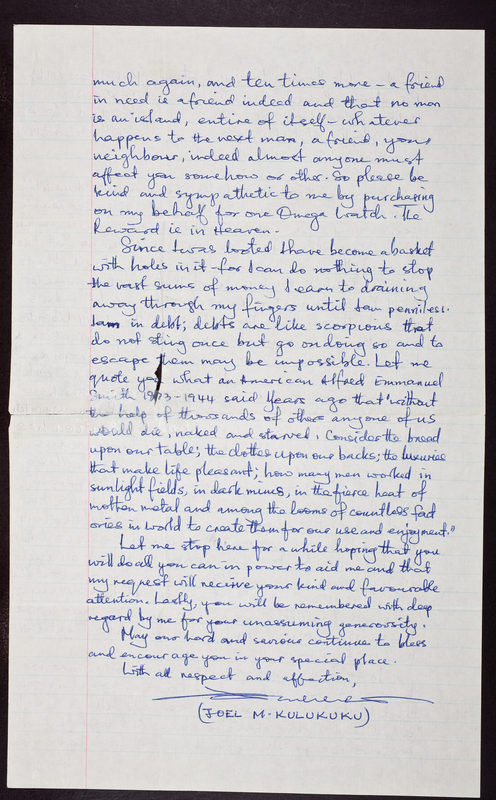 much again, and ten times more - a friend
in need is a friend indeed and that no man
is an island, entire of itself - whatever
happens to the next man, a friend, your
neighbour, indeed almost anyone must
affect you somehow or other. So please be
kind and sympathetic to me by purchasing
on my behalf for one Omega Watch. The
Reward is in Heaven.
Since I was looted I have become a basket
with holes in it - for I can do nothing to stop
the vast sums of money I earn to draining
away through my fingers until I am penniless.
I am in debt; debts are like scorpions that
do not sting once but go on doing so and to
escape them may be impossible. Let me
quote you what an American Alfred Emmanuel
Smith 1873-1944 said years ago that "without
the help of thousands of others anyone of us
would die, naked and starved. Consider the bread
upon our table; the clothes upon our backs; the luxuries
that make life pleasant; how many men worked in
sunlight fields, in dark mines, in the fierce heat of
molten metal and among the looms of countless fact
ories in world to create them for our use and enjoyment."
Let me stop here for a while hoping that you
will do all you can in power to aid me and that
my request will receive your kind and favourable
attention. Lastly, you will be remembered with deep
regard by me for your unassuming generorsity.
May our Lord and saviour continue to bless
and encourage you in your special place.
With all respect and affection,
(JOEL M. KULUKUKU)